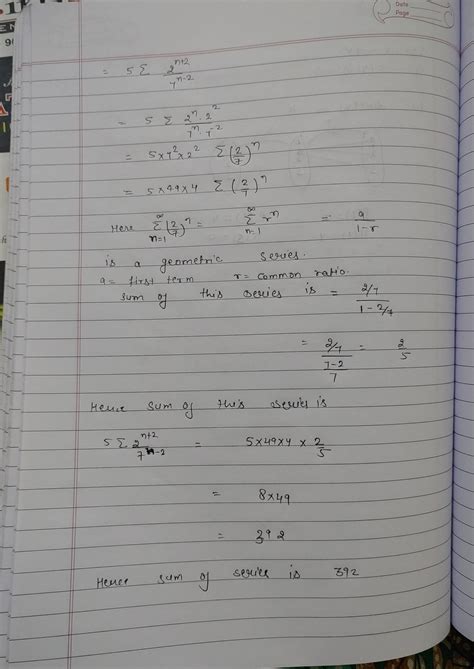 Date
Page
= 5 Σ 2^(n+2) / 7^(n-2)
= 5 Σ 2^n · 2^2 / 7^n · 7^-2
= 5×7^2×2^2 Σ (2/7)^n
= 5×49×4 Σ (2/7)^n
Here ∞ Σ n=1 (2/7)^n = ∞ Σ n=1 r^n = a / 1-r
is a geometric series.
a = first term r = common ratio.
sum of this series is = 2/7 / 1 - 2/7
= 2/7 / 7-2 / 7 = 2/5
Hence sum of this series is
5 Σ 2^(n+2) / 7^(n-2) = 5×49×4 × 2/5
= 8×49
= 392
Hence sum of series is 392